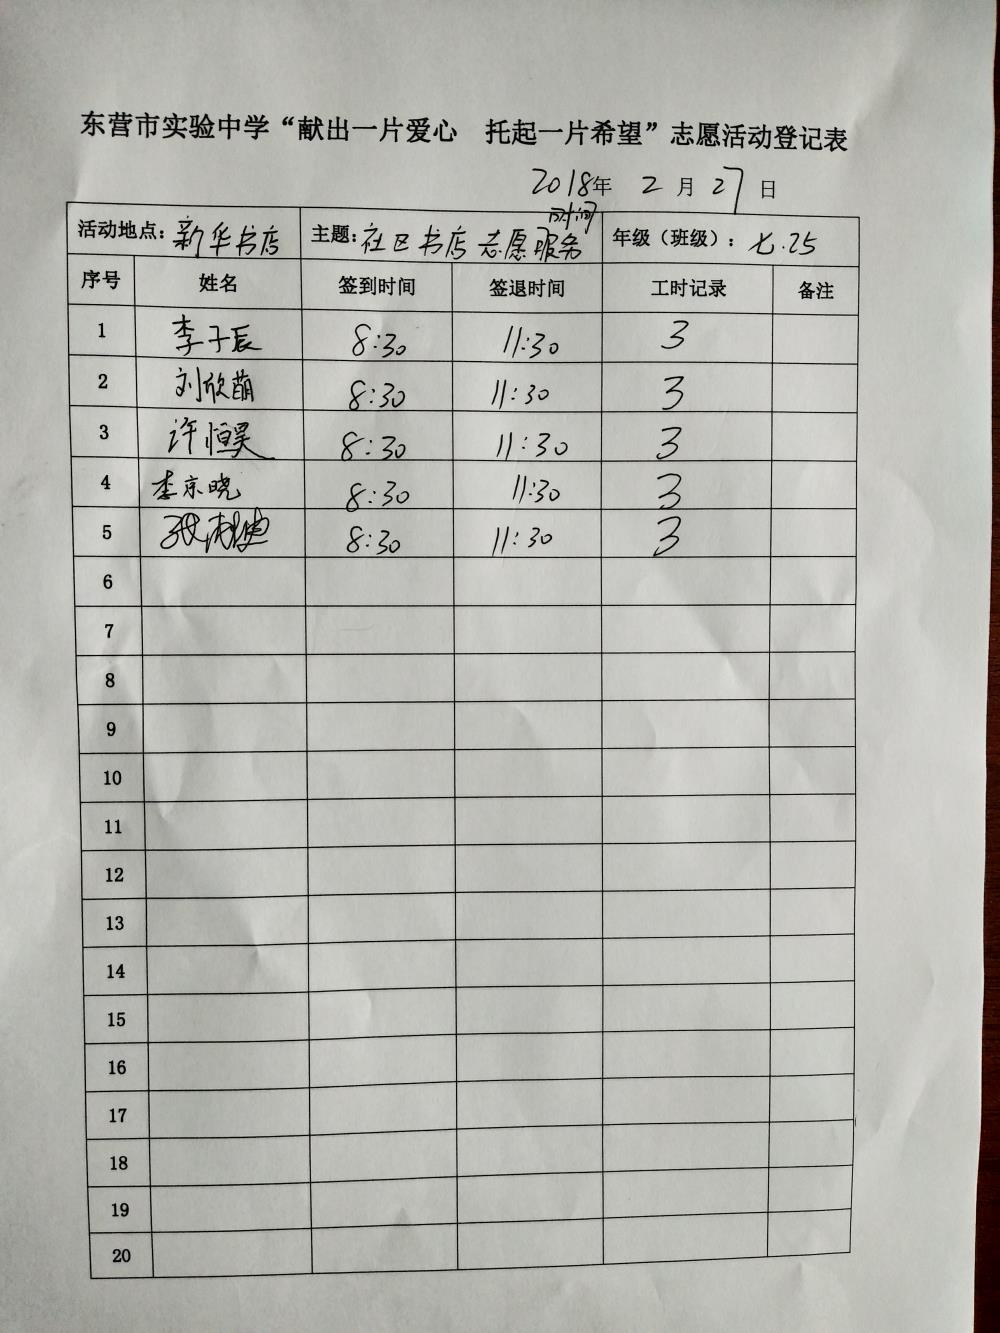 东营市实验中学“献出一片爱心 托起一片希望”志愿活动登记表
2018年 2 月 27 日
时间
活动地点：新华书店 主题：社区书店志愿服务 年级（班级）：七.25
序号 姓名 签到时间 签退时间 工时记录 备注
1 李子辰 8:30 11:30 3
2 刘欣萌 8:30 11:30 3
3 许恒昊 8:30 11:30 3
4 李京晓 8:30 11:30 3
5 8:30 11:30 3
6
7
8
9
10
11
12
13
14
15
16
17
18
19
20